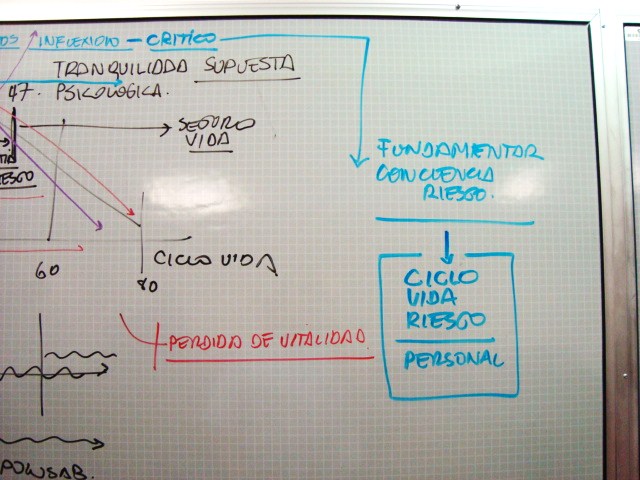 INFLEXIÓN - CRITICO
TRANQUILIDAD SUPUESTA
47. PSICOLOGICA.
SEGURO
VIDA
FUNDAMENTAR
CONCIENCIA
RIESGO.
RIESGO
60
80
CICLO VIDA
CICLO
VIDA
RIESGO
PERSONAL
PERDIDA DE VITALIDAD
PONSAB.